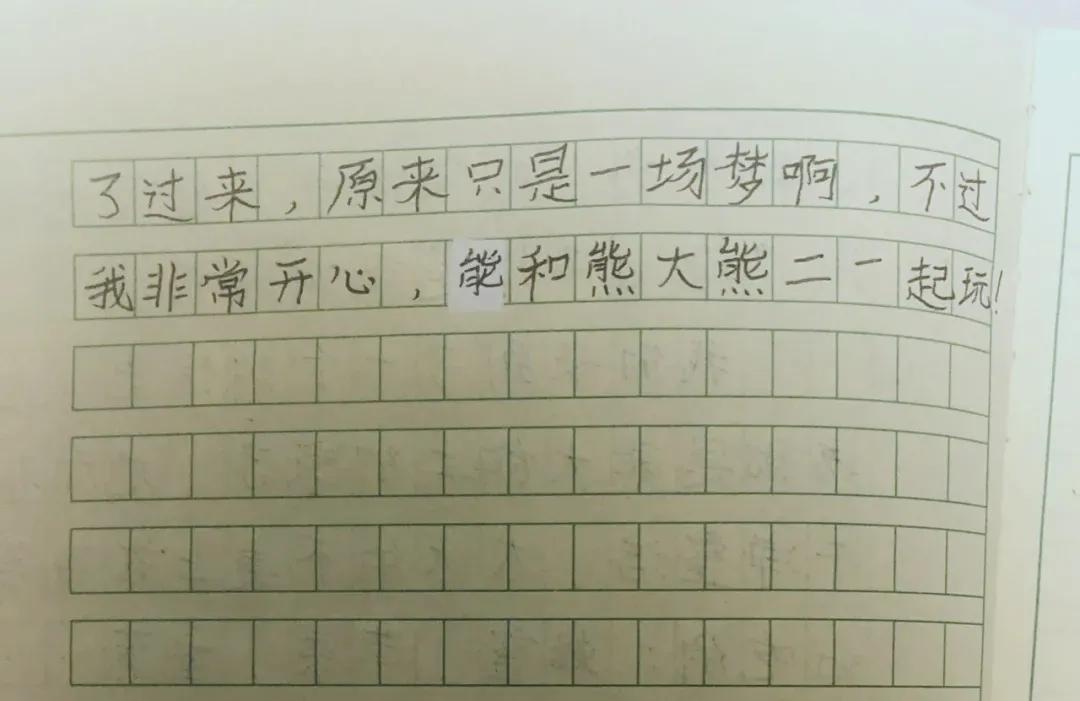 了过来，原来只是一场梦啊，不过
我非常开心，能和熊大熊二一起玩！